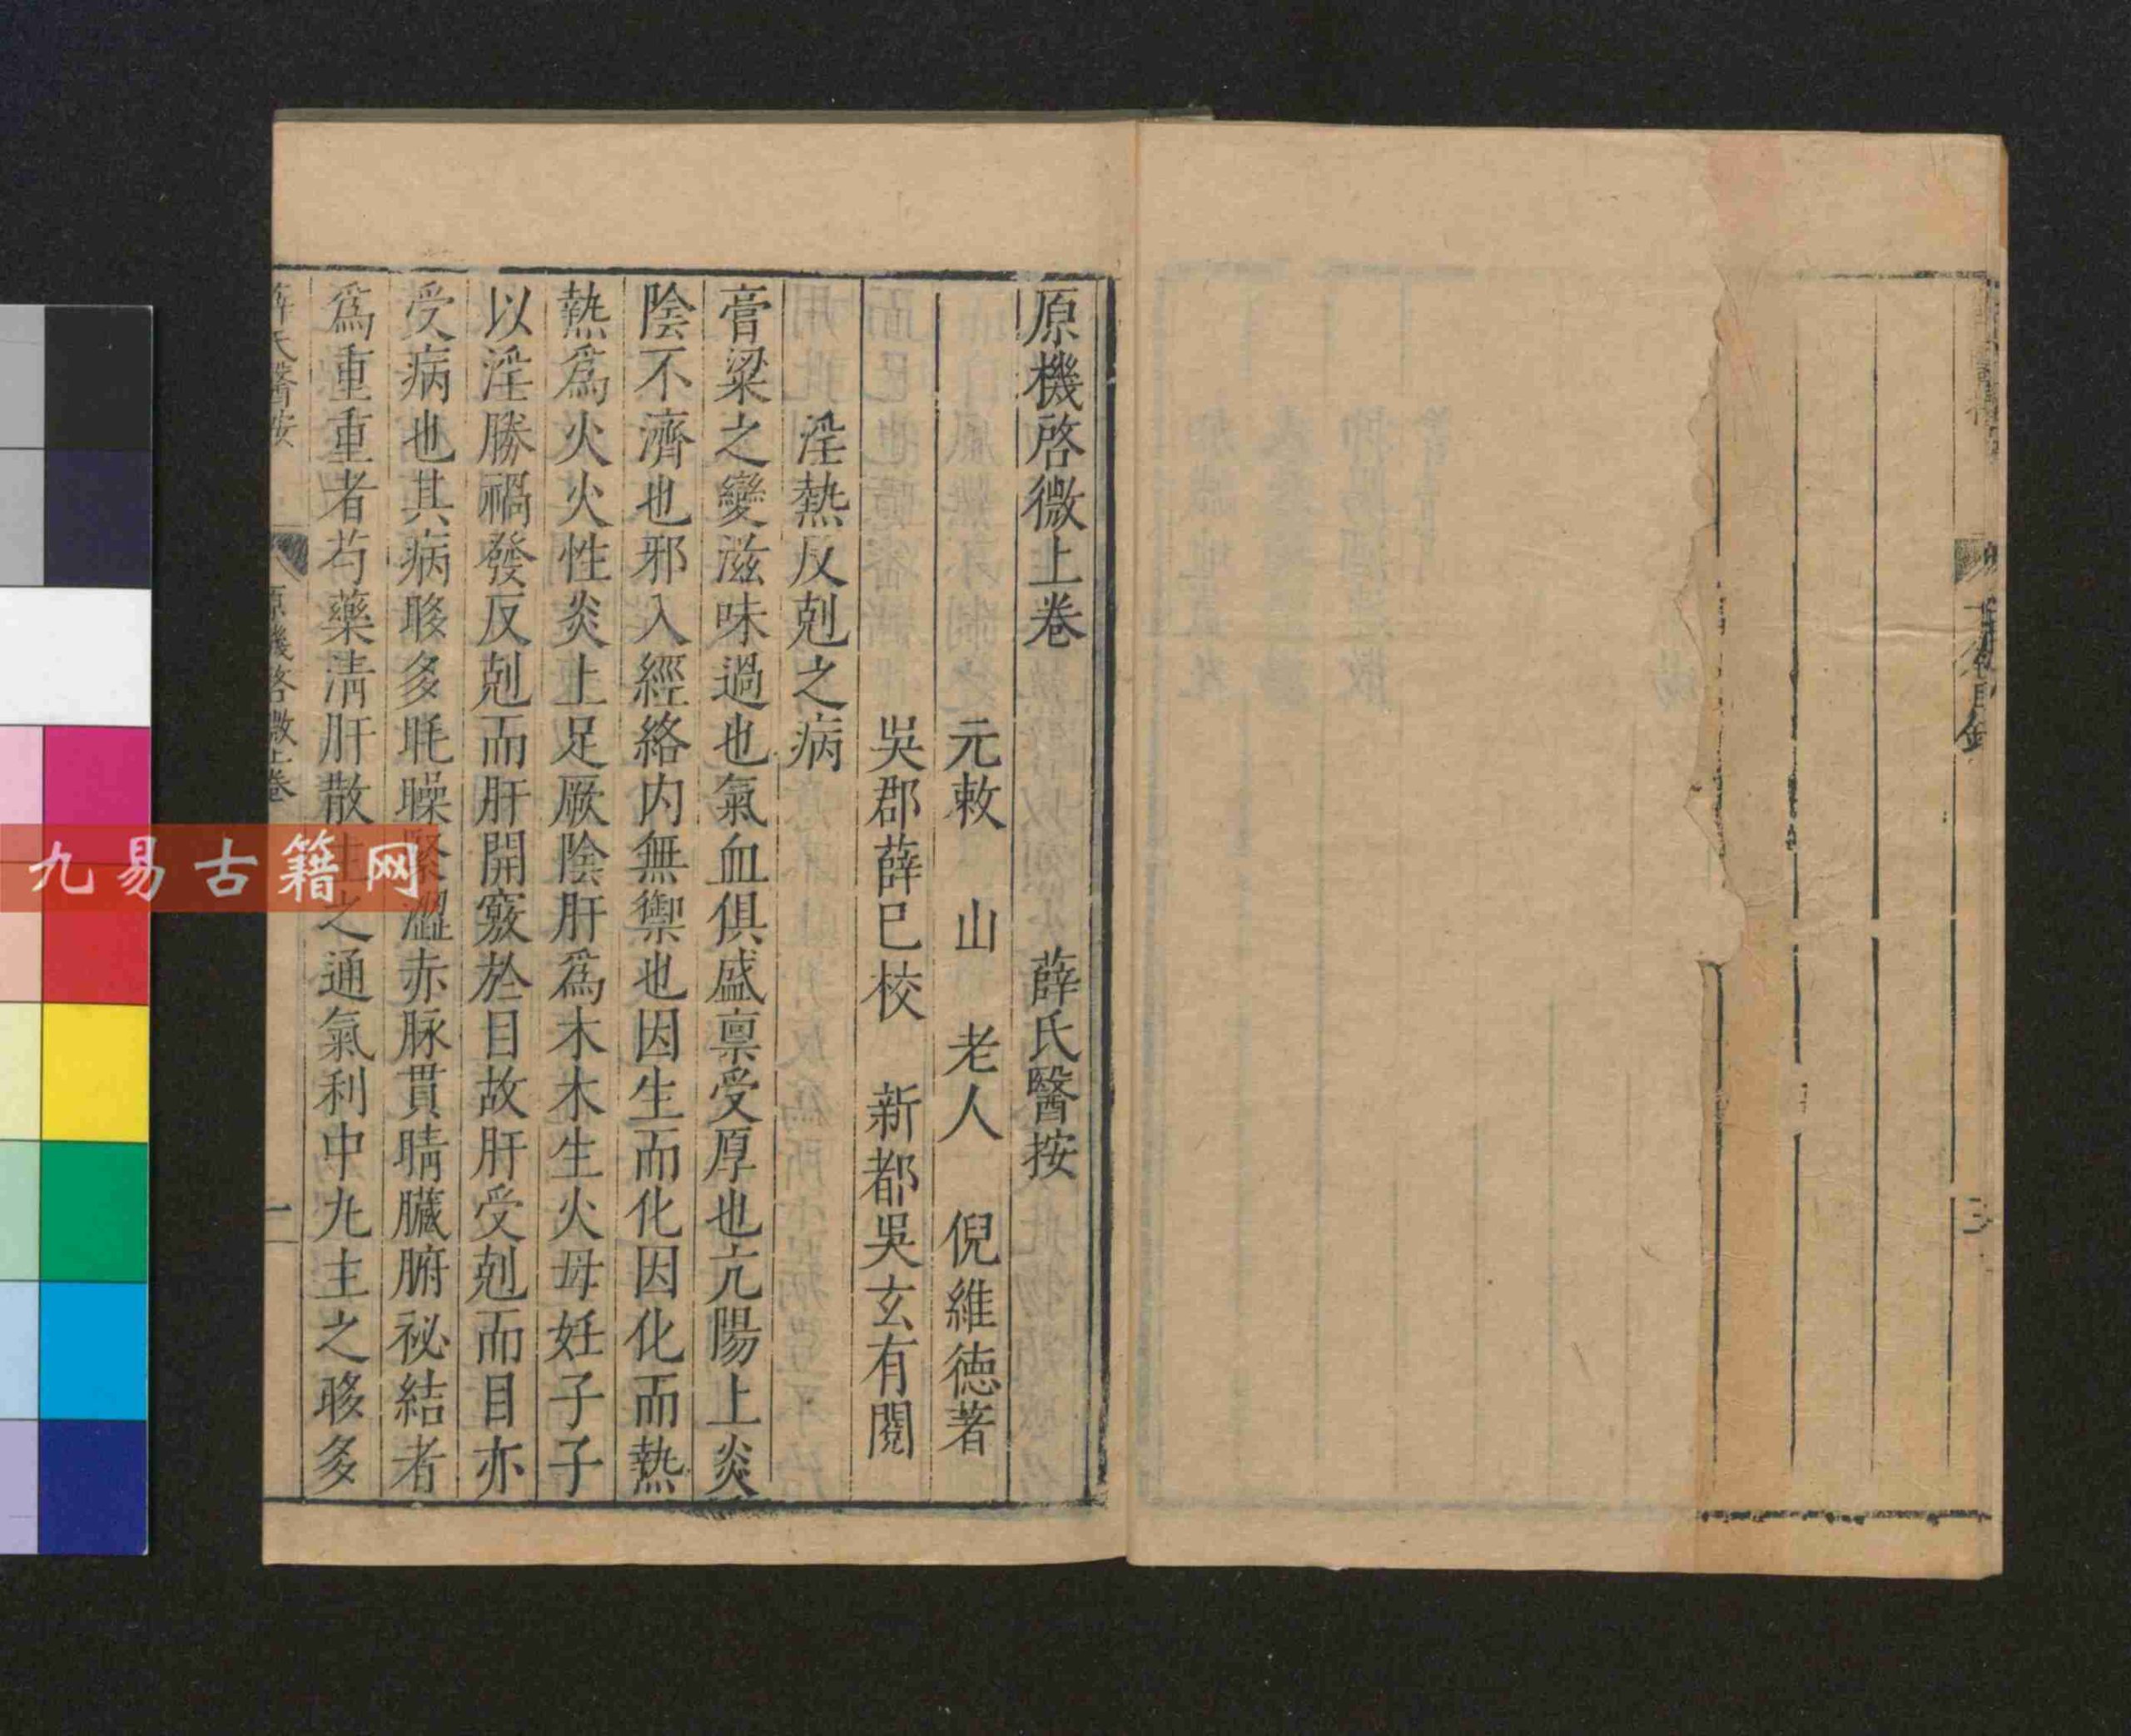 原機啓微上卷 薛氏醫按
元敕 山 老人 倪維德著
吳郡薛已校 新都吳玄有閱
淫熱反剋之病
膏粱之變滋味過也氣血俱盛禀受厚也亢陽上炎
陰不濟也邪入經絡内無禦也因生而化因化而熱
熱爲火火性炎上足厥陰肝爲木木生火母妊子子
以淫勝禍發反剋而肝開竅於目故肝受剋而目亦
受病也其病眵多眊矂緊澀赤脉貫睛臟腑祕結者
爲重重者芍藥清肝散主之通氣利中丸主之眵多
薛氏醫按 原機啓微上卷 一
九易古籍网